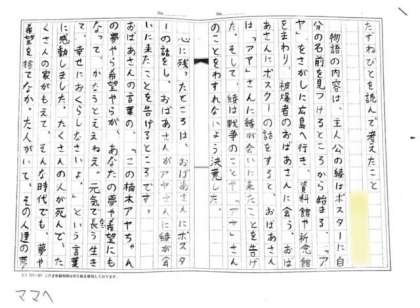 たずねびとを読んで考えたこと
物語の内容は、主人公の綾はポスターに自
分の名前を見つけるところから始まる。「ア
ヤ」をさがしに広島へ行き、資料館や祈念館
をまわり、被爆者のおばあさんに会う。おば
あさんにポスターの話をすると、おばあさん
は「アヤ」さんに綾が会いに来たことを告げ
た。そして、綾は戦争のことや、「アヤ」さん
のことをわすれないよう決意した。
心に残ったところは、おばあさんにポスタ
ーの話をし、おばあさんがアヤさんに綾が会
いに来たことを告げるところです。
おばあさんの言葉の、「この楠木アヤちゃん
の夢やら希望やらが、あなたの夢や希望にも
なって、かなうとええねえ。元気で長う生き
て、幸せにおくらしなさいよ。」という言葉
に感動しました。たくさんの人が死んで、た
くさんの家がもえて、そんな時代でも、夢や
希望を捨てなかった人がいて、その人達の夢
ママへ